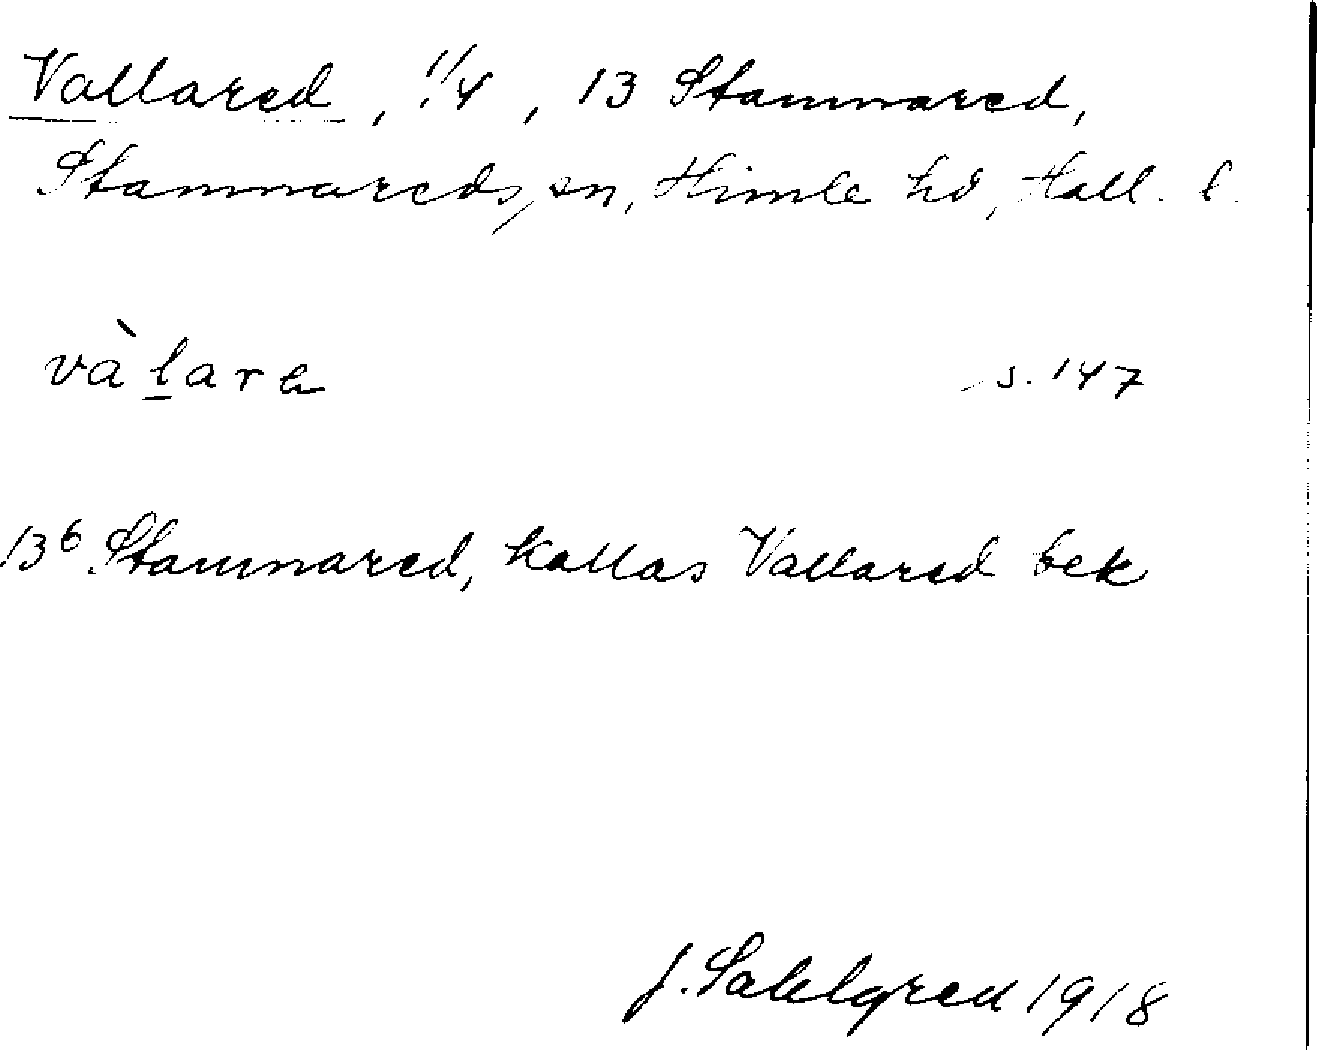 Vallared, 1/4, 13 Stamnared,
Stamnareds sn, Himle hd, Hall. l.
và l̲arə s. 147
13⁶ Stamnared, kallas Vallared bek
J. Sahlgren 1918